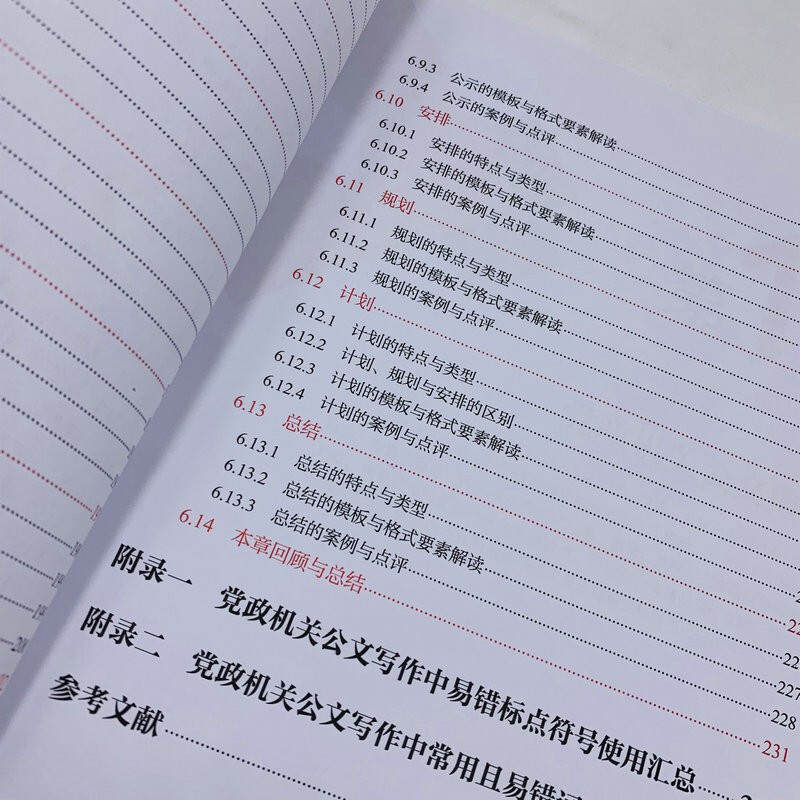 6.9.3 公示的模板与格式要素解读
6.9.4 公示的案例与点评
6.10 安排
6.10.1 安排的特点与类型
6.10.2 安排的模板与格式要素解读
6.10.3 安排的案例与点评
6.11 规划
6.11.1 规划的特点与类型
6.11.2 规划的模板与格式要素解读
6.11.3 规划的案例与点评
6.12 计划
6.12.1 计划的特点与类型
6.12.2 计划、规划与安排的区别
6.12.3 计划的模板与格式要素解读
6.12.4 计划的案例与点评
6.13 总结
6.13.1 总结的特点与类型
6.13.2 总结的模板与格式要素解读 227
6.13.3 总结的案例与点评 228
6.14 本章回顾与总结 231
附录一 党政机关公文写作中易错标点符号使用汇总
附录二 党政机关公文写作中常用且易错词
参考文献